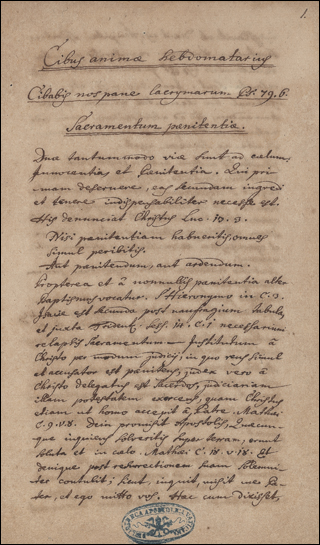 1.
Cibus animæ hebdomatarius
Cibabis nos pane lacrymarum Ps. 79. 6.
Sacramentum pænitentiæ.
Duæ tantummodo viæ sunt ad cælum,
innocentia et Pænitentia. Qui pri
mam deseruere, eas secundam ingredi
et tenere indispensabiliter necesse est.
His denunciat Christus Luc. 13. 3.
Nisi pænitentiam habueritis, omnes
simul peribitis.
Aut pænitendum, aut ardendum.
Propterea et à nonnullis pænitentia alter
Baptismus vocatur. S. Hieronymo in C. 3.
Isaiæ est secunda post naufragium tabula,
et juxta Trident. Sess. 14. C. 2 necessarium
relapsis Sacramentum. Institutum à
Christo per modum judicij, in quo reus simul
et accusator est pænitens, judex vero à
Christo delegatus est Sacerdos, judiciariam
illam potestatem exercens, quam Christus
etiam ut homo accepit à Patre. Mathæi
C. 9. v. 8. Dein promisit Apostolis, Quæcum
que inquiens solveritis super terram, erunt
soluta et in cælo. Mathæi C. 18. v. 18. at
denique post resurrectionem suam solemni
ter contulit: Sicut, inquit, misit me Pa
ter, et ego mitto vos. Hæc cum dixisset,